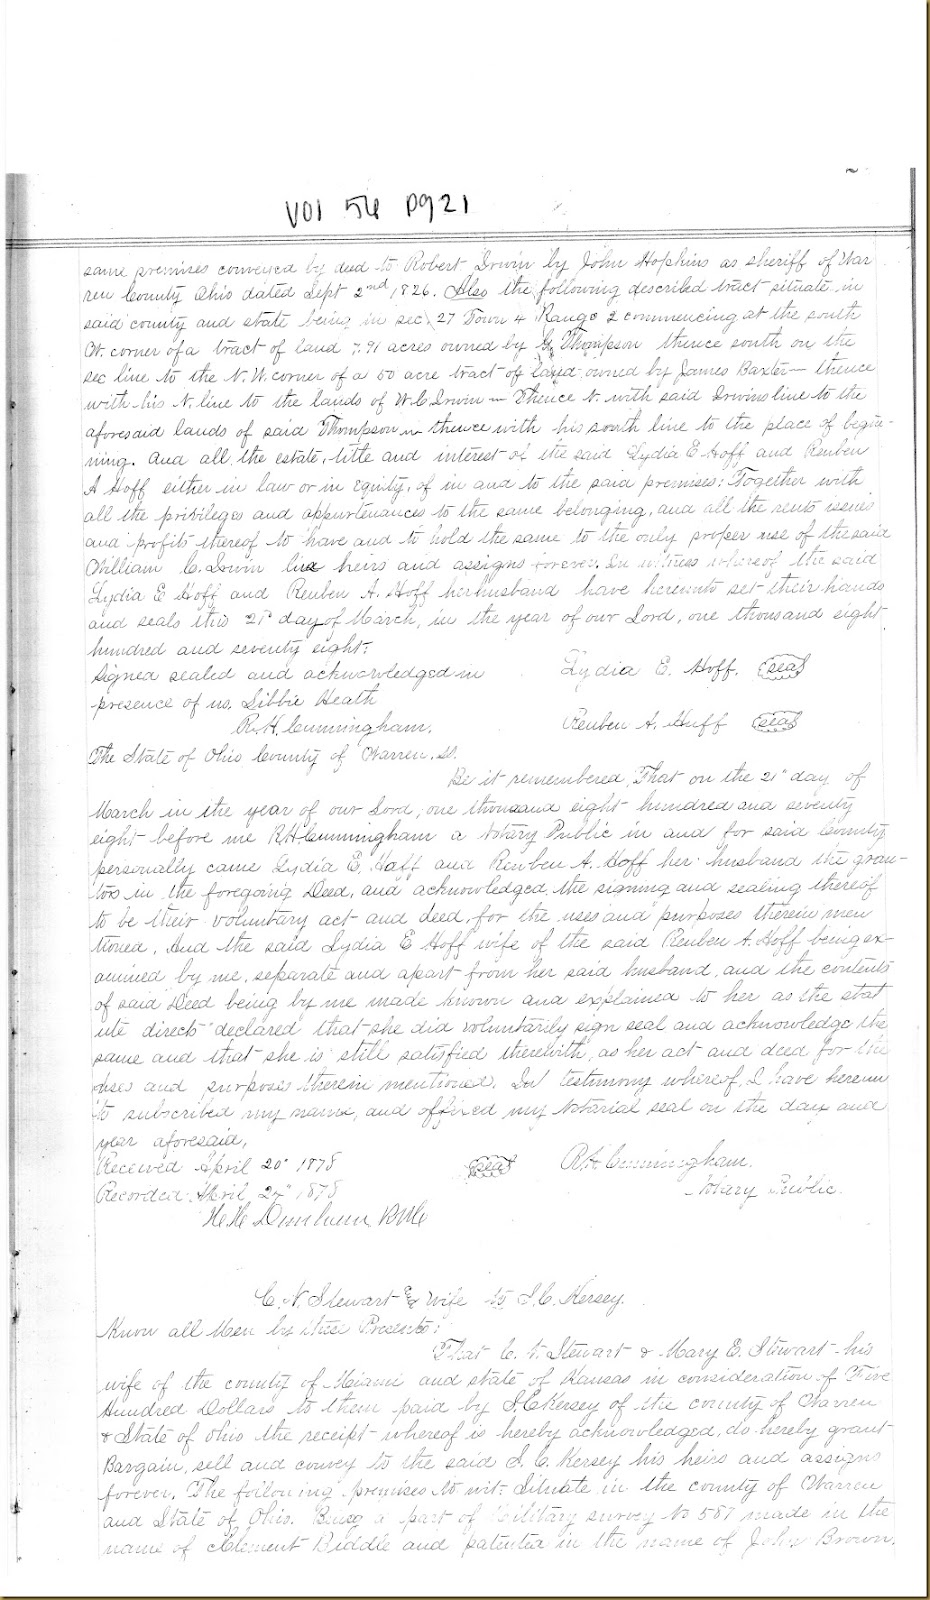 Vol 54 pg 21
same premises conveyed by deed to Robert Irwin by John Hopkins as sheriff of War
ren County Ohio dated Sept 2nd 1826. Also the following described tract situate in
said county and state being in sec. 27 Town 4 Range 2 commencing at the south
W. corner of a tract of land 7.91 acres owned by G. Thompson thence south on the
sec line to the N. W. corner of a 50 acre tract of land owned by James Baxter — thence
with his N. line to the lands of W. C. Irwin — Thence N. with said Irwins line to the
aforesaid lands of said Thompson — thence with his south line to the place of begin-
ning. And all the estate, title and interest of the said Lydia E Hoff and Reuben
A Hoff either in law or in equity, of in and to the said premises: Together with
all the privileges and appurtenances to the same belonging, and all the rents issues
and profits thereof to have and to hold the same to the only proper use of the said
William C. Irwin his heirs and assigns forever. In witness whereof the said
Lydia E Hoff and Reuben A. Hoff her husband have hereunto set their hands
and seals this 21st day of March, in the year of our Lord, one thousand eight
hundred and seventy eight.
Signed sealed and acknowledged in Lydia E. Hoff. seal
presence of us. Libbie Heath
R. H. Cunningham. Reuben A. Huff seal
The State of Ohio County of Warren. SS.
Be it remembered, That on the 21" day of
March in the year of our Lord, one thousand eight hundred and seventy
eight before me R. H. Cunningham a Notary Public in and for said County
personally came Lydia E. Hoff and Reuben A. Hoff her husband the gran-
tors in the foregoing Deed, and acknowledged the signing and sealing thereof
to be their voluntary act and deed, for the uses and purposes therein men
tioned. And the said Lydia E Hoff wife of the said Reuben A. Hoff being ex-
amined by me, separate and apart from her said husband, and the contents
of said Deed being by me made known and explained to her as the stat
ute directs declared that she did voluntarily sign seal and acknowledge the
same and that she is still satisfied therewith, as her act and deed for the
uses and purposes therein mentioned. In testimony whereof, I have hereun
to subscribed my name, and affixed my Notarial seal on the day and
year aforesaid.
Received April 20" 1878 seal R. H. Cunningham.
Recorded April 27" 1878 Notary Public.
C. N. Stewart & Wife to J. C. Kersey.
Know all Men by these Presents:
That C. N. Stewart & Mary E. Stewart his
wife of the county of Miami and state of Kansas in consideration of Five
Hundred Dollars to them paid by J. C. Kersey of the county of Warren
& State of Ohio the receipt whereof is hereby acknowledged, do hereby grant
Bargain, sell and convey to the said J. C. Kersey his heirs and assigns
forever. The following premises to wit. Situate in the county of Warren
and State of Ohio. Being a part of Military survey No 587 made in the
name of Clement Biddle and patented in the name of John Brown.